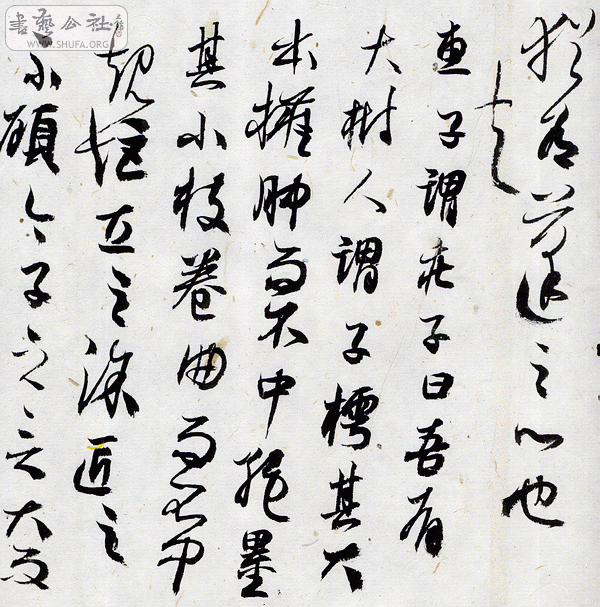 書藝公社
WWW.SHUFA.ORG
猶有蓬之心也
夫
惠子謂莊子曰吾有
大樹人謂子樗其大
本擁腫而不中繩墨
其小枝卷曲而不中
規矩立之塗匠者
不顧今子之言大而